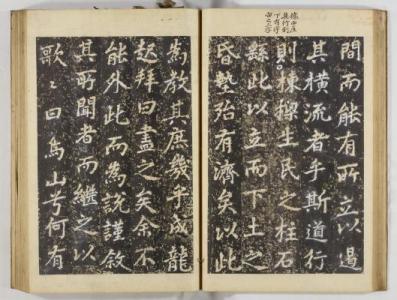 間而能有所立以遏
其橫流者乎斯道行
則棟生民之柱石
繇此以立而下土之
昏墊殆有濟矣以此
為教其庶幾乎成龍
起拜曰盡之矣余不
能外此而為說謹敘
其所聞者而繼之以
歌〻曰烏山兮何有